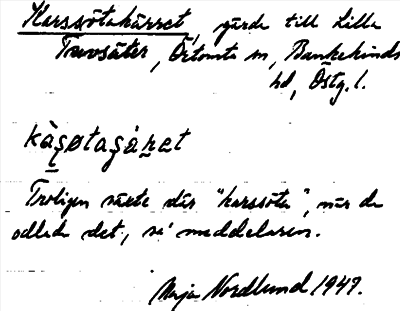 Karssötakärret, gärde till Lilla
Truvsäter, Örtomta sn, Bankekinds
hd, Östg. l.
kàʂøtaʂáret
Troligen växte där "karssöta", när de
odlade det, sa' meddelaren.
Maja Nordlund 1947.